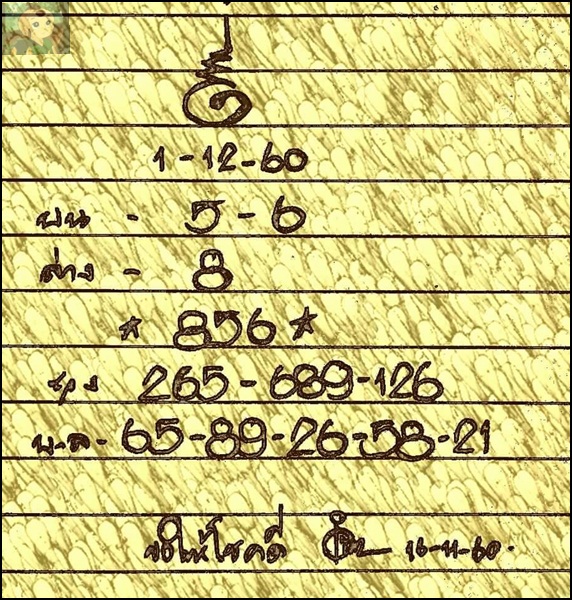 1-12-60
บน - 5-6
ล่าง - 8
* 856 *
265-689-126
บ.ล - 65-89-26-58-21
ขอให้โชคดี 16-11-60.